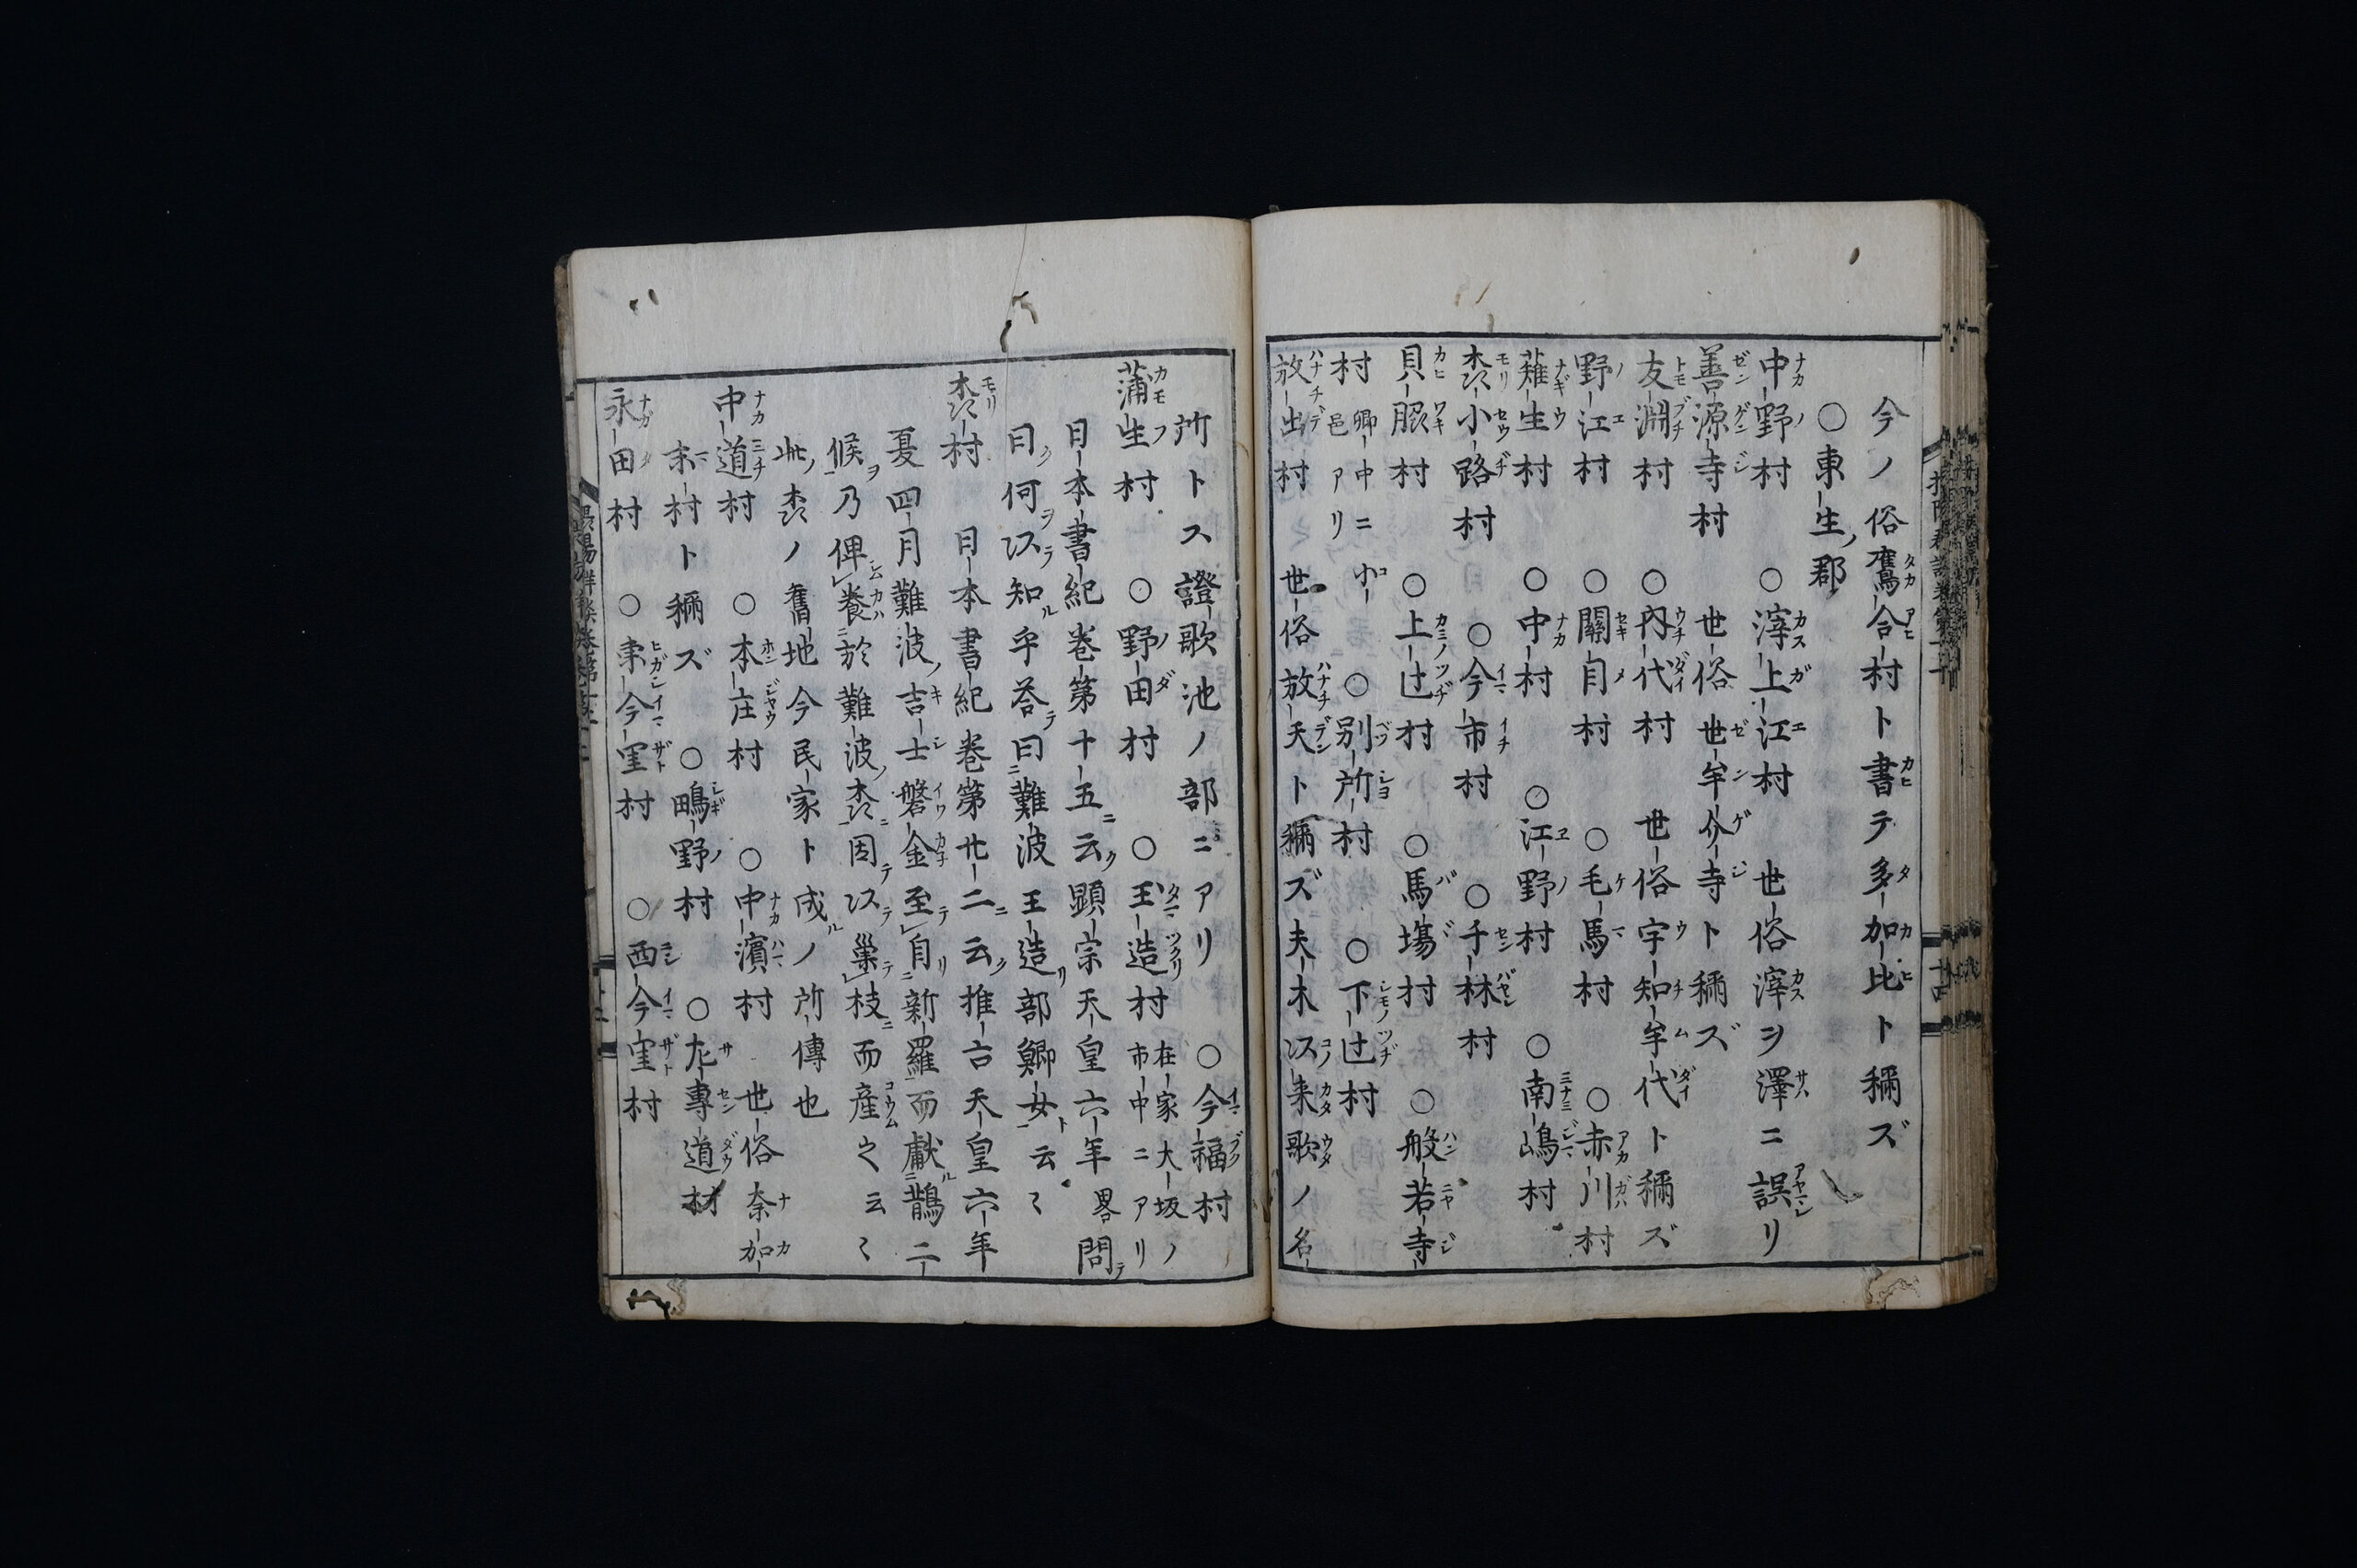 今ノ俗鷹合村ト書テ多加比ト稱ズ
○東生ノ郡
中野村 ○滓上江村 世俗滓ヲ澤ニ誤リ
善源寺村 世俗世牟介寺ト稱ズ
友淵村 ○内代村 世俗宇知牟代ト稱ズ
野江村 ○關目村 ○毛馬村 ○赤川村
薙生村 ○中村 ○江野村 ○南嶋村
森小路村 ○今市村 ○千林村
貝脇村 ○上辻村 ○馬塲村 ○般若寺
村 郷中ニ小邑アリ ○別所村 ○下辻村
放出村 世俗放天ト稱ズ夫木以来歌ノ名
所トス證歌池ノ部ニアリ ○今福村
蒲生村 ○野田村 ○玉造村 在家大坂ノ市中ニアリ
日本書紀巻第十五ニ云ク顯宗天皇六年畧問テ
曰ク何ヲ以テ知ル乎荅テ曰難波玉造リ部鯽女ト云〻
森村 日本書紀巻第廿二ニ云ク推古天皇六年
夏四月難波ノ吉士磐金至テ自リ新羅而獻ル鵲二
候ヲ乃俾養於難波ノ森ニ因テ以テ巢テ枝ニ而産之云〻
此ノ森ノ舊地今民家ト成ルノ所傳也
中道村 ○本庄村 ○中濱村 世俗奈加
末村ト稱ズ ○鴫野村 ○左專道村
永田村 ○東今里村 ○西今里村